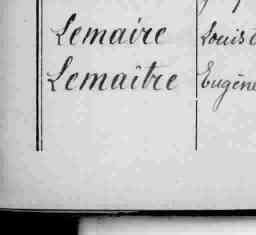 Lemaire Louis
Lemaître Eugène